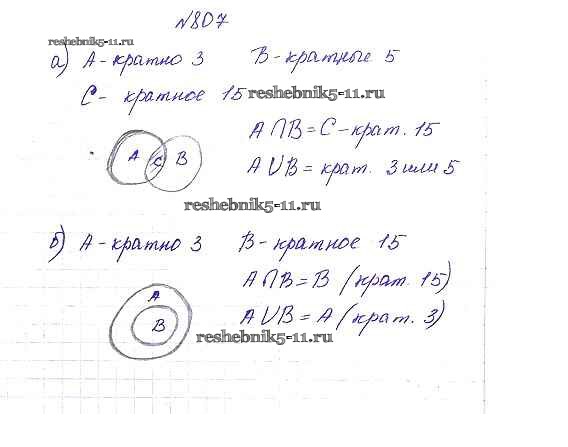 №807
reshebnik5-11.ru
а) А - кратно 3 В - кратные 5
С - кратное 15 reshebnik5-11.ru
А ∩ В = С - крат. 15
А С В
А ∪ В = крат. 3 или 5
reshebnik5-11.ru
б) А - кратно 3 В - кратное 15
А ∩ В = В (крат. 15)
А
В
А ∪ В = А (крат. 3)
reshebnik5-11.ru